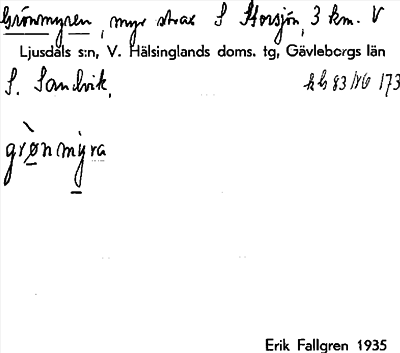 Grönmyren, myr strax S Storsjön, 3 km. V
Ljusdals s:n, V. Hälsinglands doms. tg, Gävleborgs län
S. Sandvik.
grø̀nmỳra
Erik Fallgren 1935